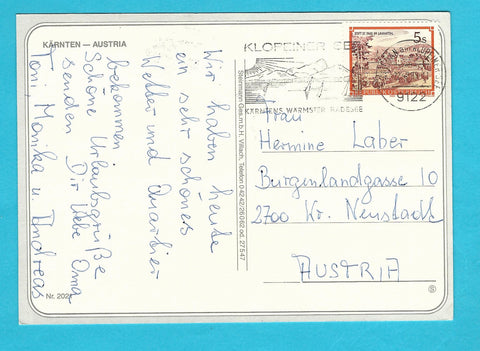 KÄRNTEN — AUSTRIA
Wir haben heute
ein sehr schönes
Wetter und Quartier
bekommen
Schöne Urlaubsgrüße
senden Dir liebe Oma
Toni Monika u. Andreas
Nr. 202
Steinmann Ges.m.b.H. Villach, Telefon 04242/26062 od. 27547
KLOPEINER SEE
KÄRNTENS WÄRMSTER BADESEE
5s
9122
Frau
Hermine Laber
Burgenlandgasse 10
2700 Kr. Neustadt
AUSTRIA
S